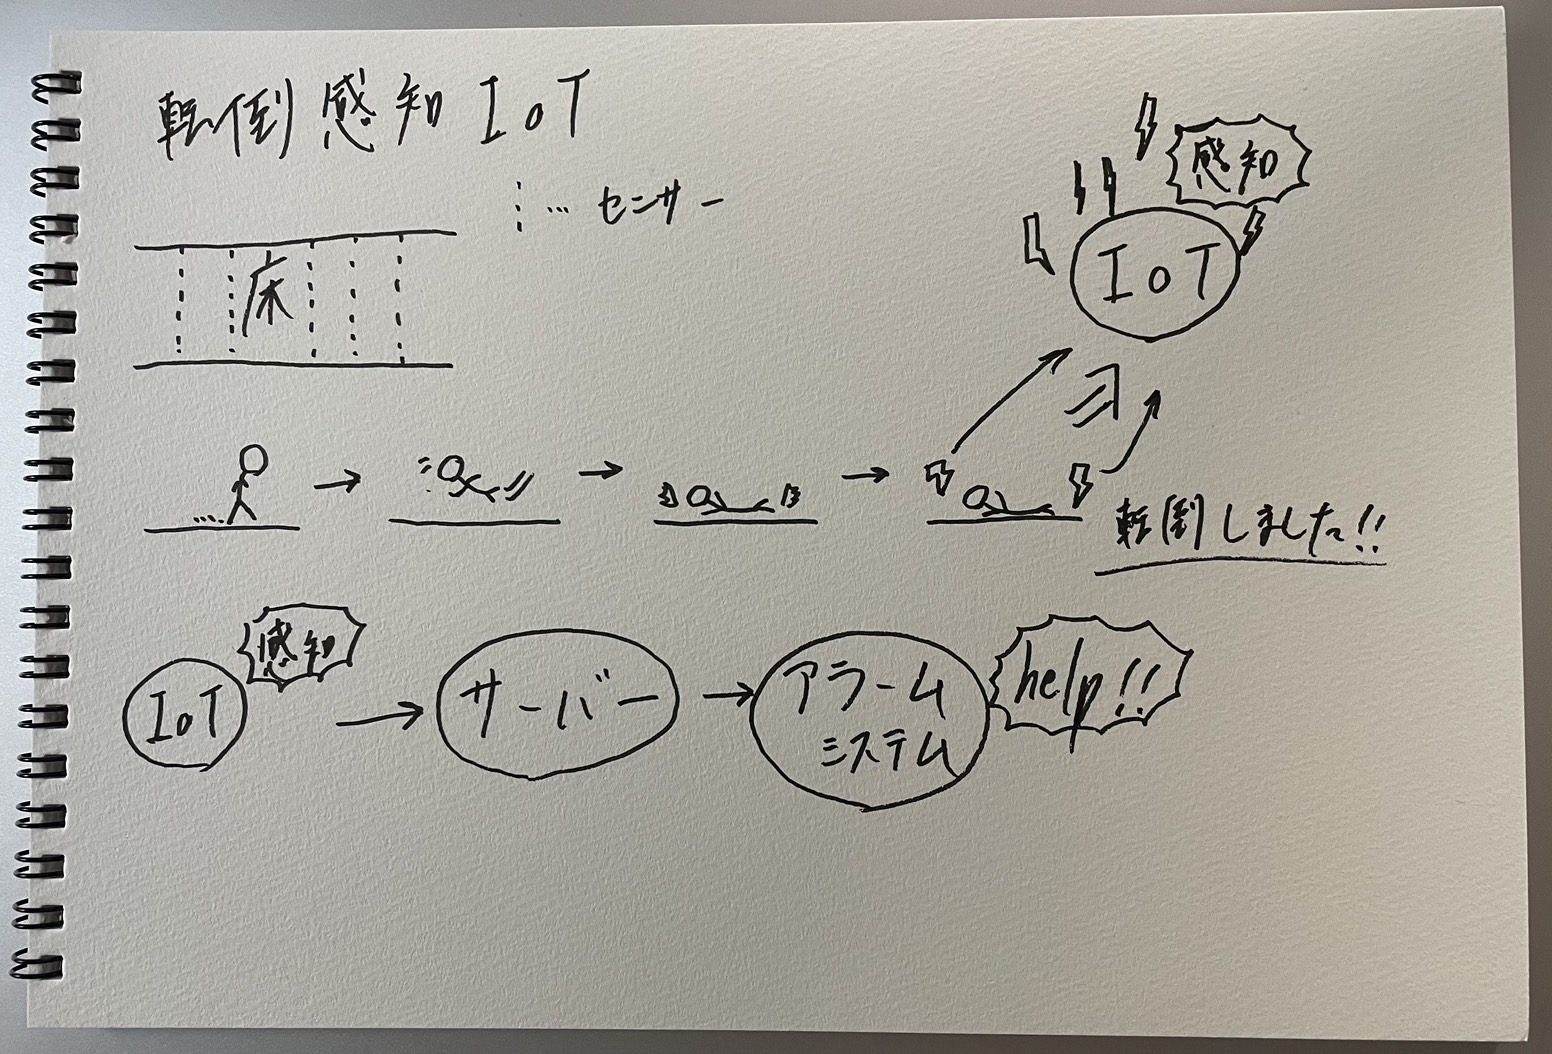 転倒感知IoT
… センサー
床
感知
IoT
転倒しました!!
感知
IoT
サーバー
アラーム
システム
help!!